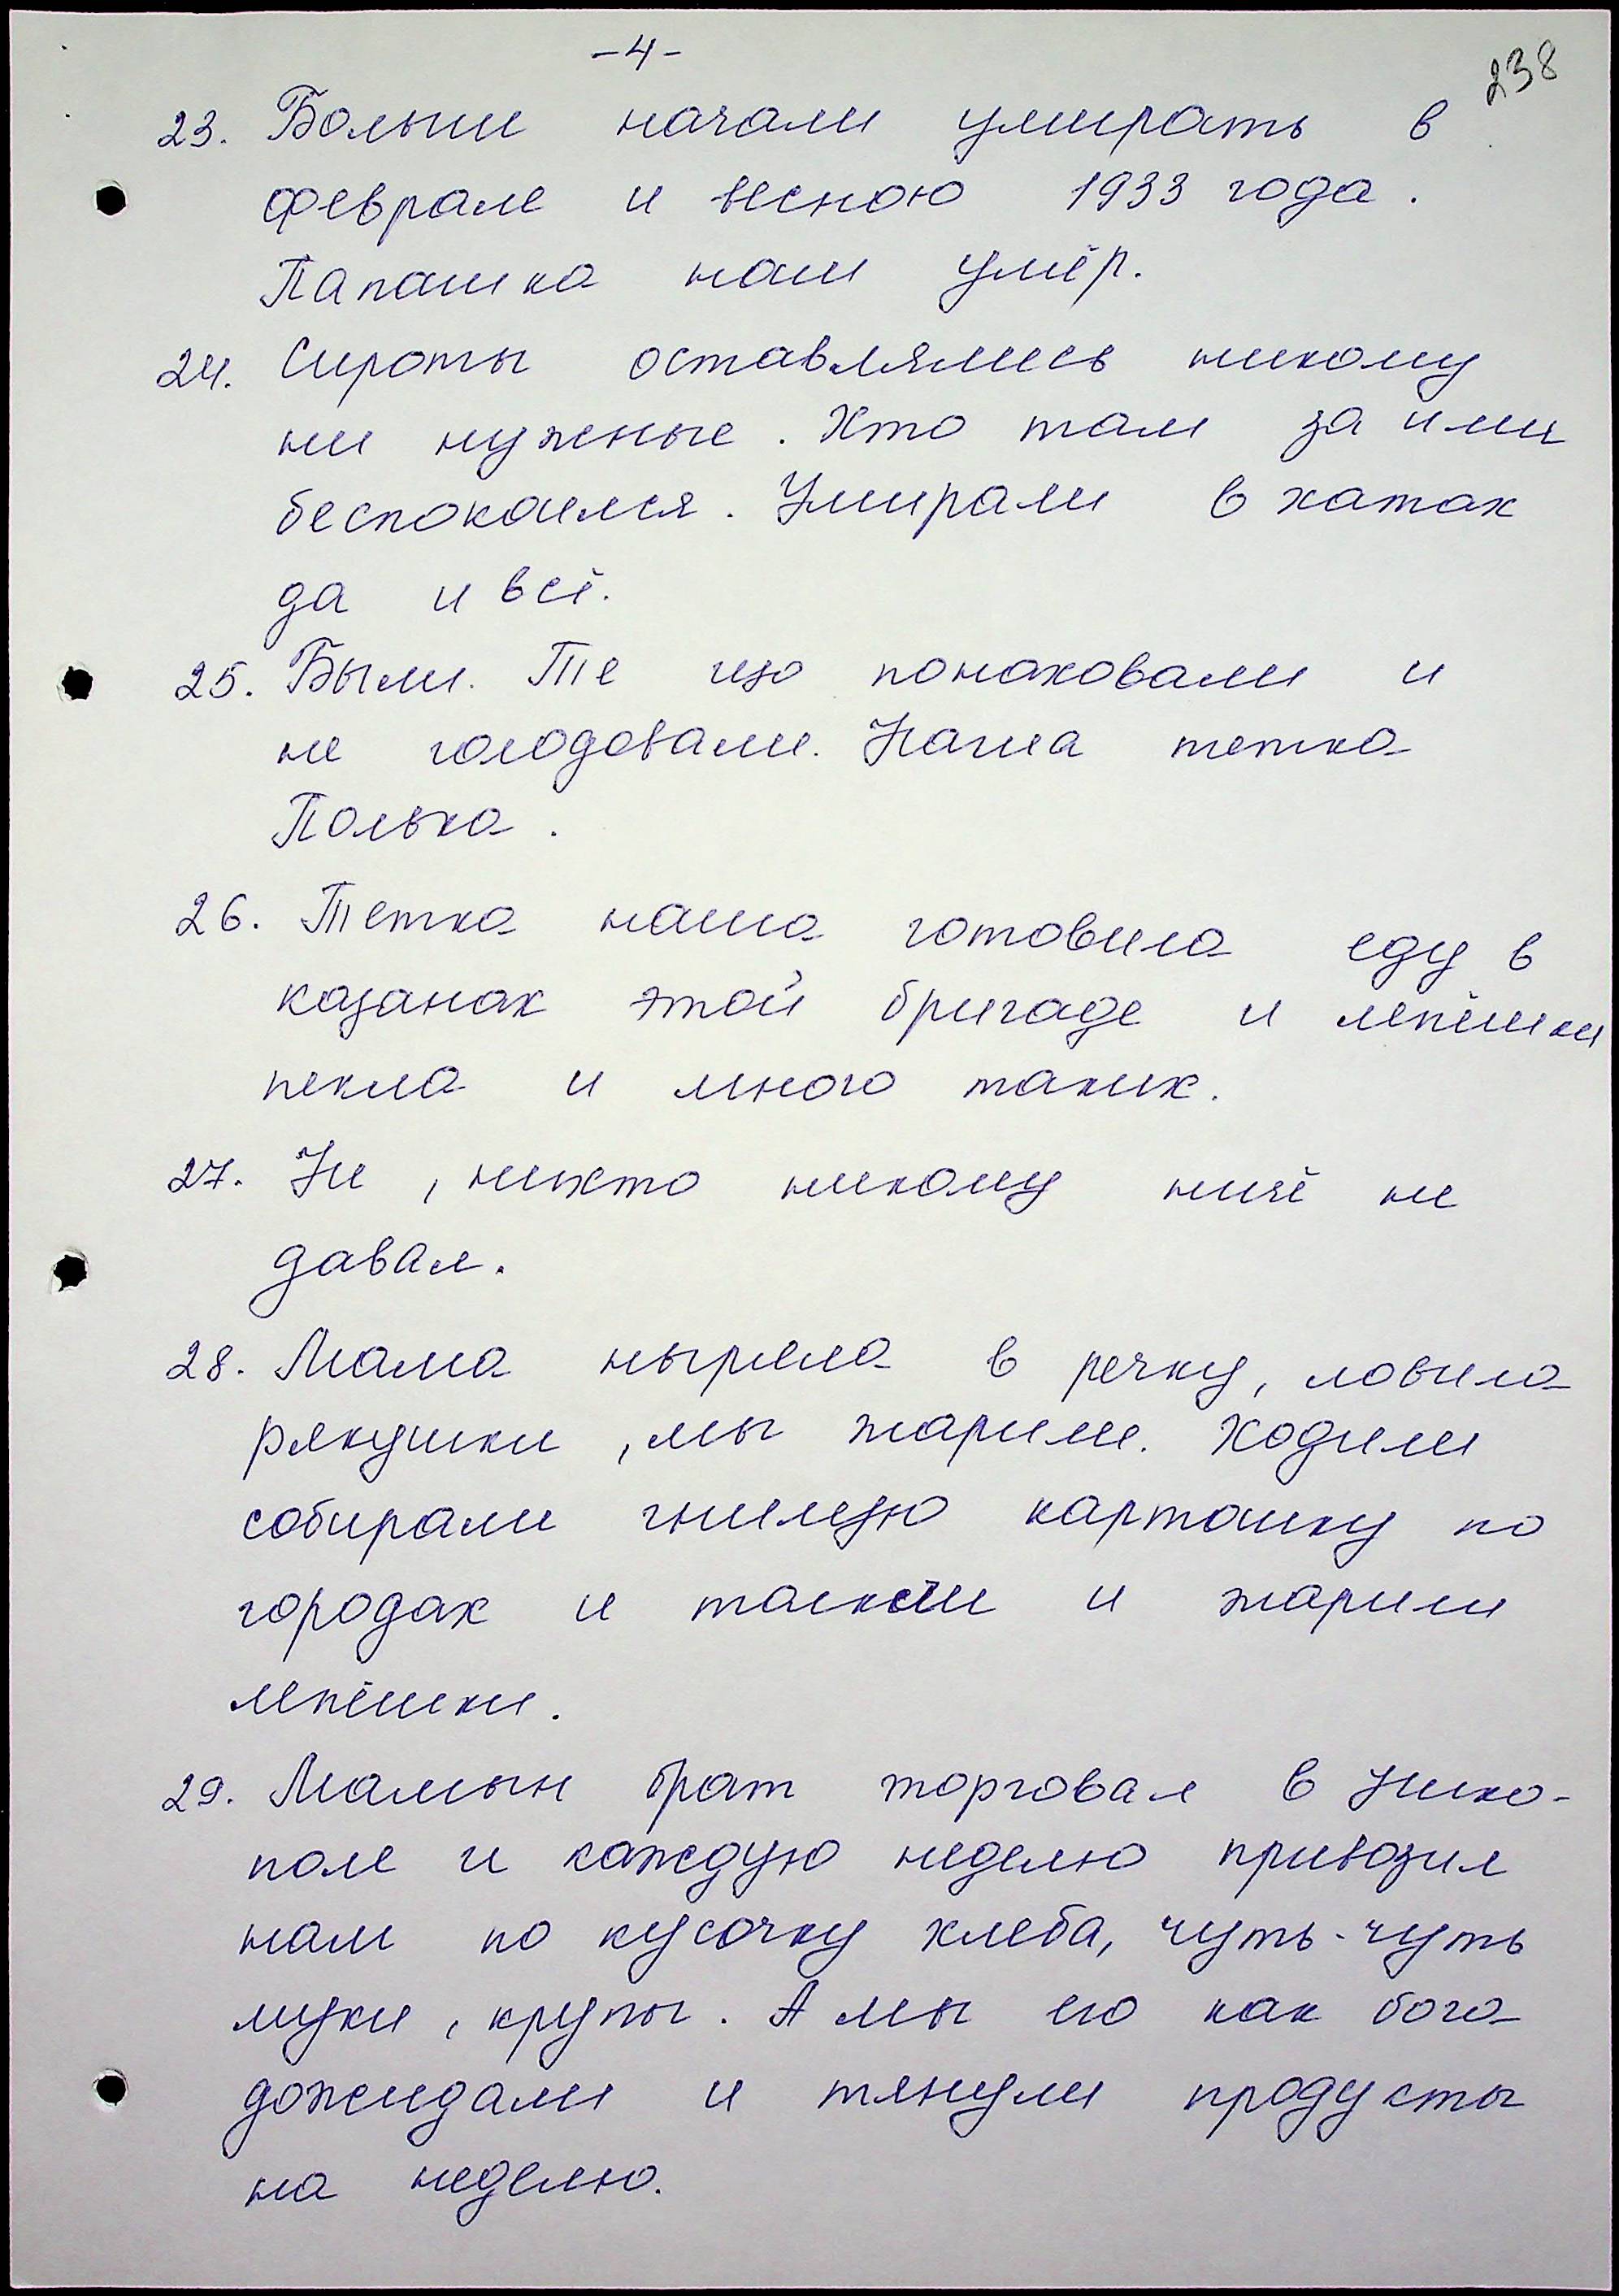 -4-
238
23. Больши начали умирать в
феврале и весною 1933 года.
Папашка наш умёр.
24. Сироты оставлялись никому
ни нужные. Хто там за ими
беспокоился. Умирали в хатах
да и всё.
25. Были. Те що понаховали и
не голодовали. Наша тетка
Полька.
26. Тетка наша готовила еду в
казанах этой бригаде и лепёшки
пекла и много таких.
27. Не, нихто никому ничё не
давал.
28. Мама ныряла в речку, ловила
рякушки, мы жарили. Ходили
собирали гнилую картошку по
городах и толкли и жарили
лепёшки.
29. Мамын брат торговал в Нико-
поле и каждую неделю привозил
нам по кусочку хлеба, чуть-чуть
муки, крупы. А мы его как бога
дожидали и тянули продукты
на неделю.